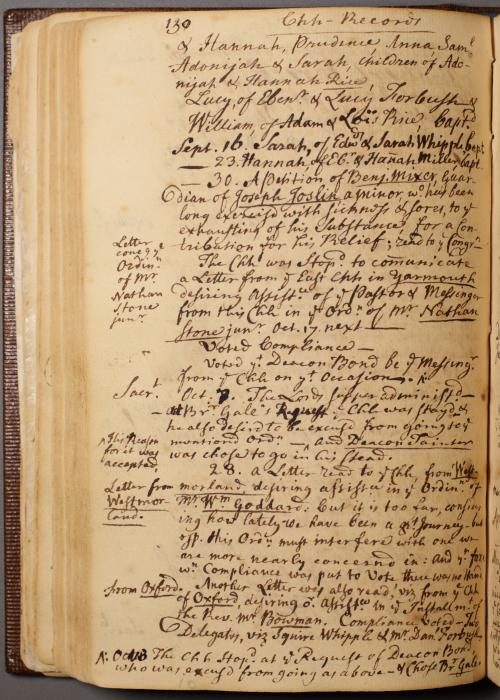 130 Chh-Records
& Hannah, Prudence, Anna Saml
Adonijah & Sarah, children of Ado-
nijah & Hannah Rice,
Lucy, of Ebenr. & Lucy Forbush &
William, of Adam & Lois Rice, bapt.d
Sept. 16. Sarah, of Edwd & Sarah Whipple bapt
— 23. Hannah, of Eb. & Hanah Miller bapt.
— 30. A Petition of Benj. Mixer, Guar
dian of Joseph Joslin a minor, wo has been
long exercis'd with sickness & sores, to ye
exhausting of his Substance, for a Con-
tribution for his Relief; read to ye Congrn.
The Chh was Stop'd to comunicate
a Letter from ye East Chh in Yarmouth
desiring Assistce of ye Pastor & Messenger
from this Chh in ye Ordn. of Mr. Nathan
Stone junr. Oct. 17 next —
Letter
ye
Ordin.
of Mr.
Nathan
Stone
junr.
Voted Compliance —
Voted yt. Deacon Bond be ye Messengr.
from ye Chh on yt. Occasion. A.
Sacrt. Oct. 7. The Lords supper administd —
— At Br. Gale's Request, Chh was stay'd &
he also desir'd to be excus'd from going to ye
mention'd Ordn. —, and Deacon Tainter
was chose to go in his stead.
^ This Reason
for it was
accepted.
28. a Letter read to ye Chh, from West-
morland, desiring assistce in ye Ordinn. of
Mr. Wm Goddard. But it is too far, consider
ing how lately we have been a Journey — but
esp. this Ordn. must interfere with one we
are more nearly concern'd in: And yrfore
wn. Compliance was put to Vote there was no Hand
Letter from
Westmor-
land.
from Oxford. Another Letter was also read, viz from ye Chh
of Oxford, desiring o. assistce in ye Installmt. of
the Rev. Mr. Bowman. Compliance voted — Two
Delegates, viz Squire Whipple & Mr. Danl. Forbush
A: Oct. The Chh Stop'd at ye Request of Deacon Bond,
who was excus'd from going as above — & Chose Br. Gale.